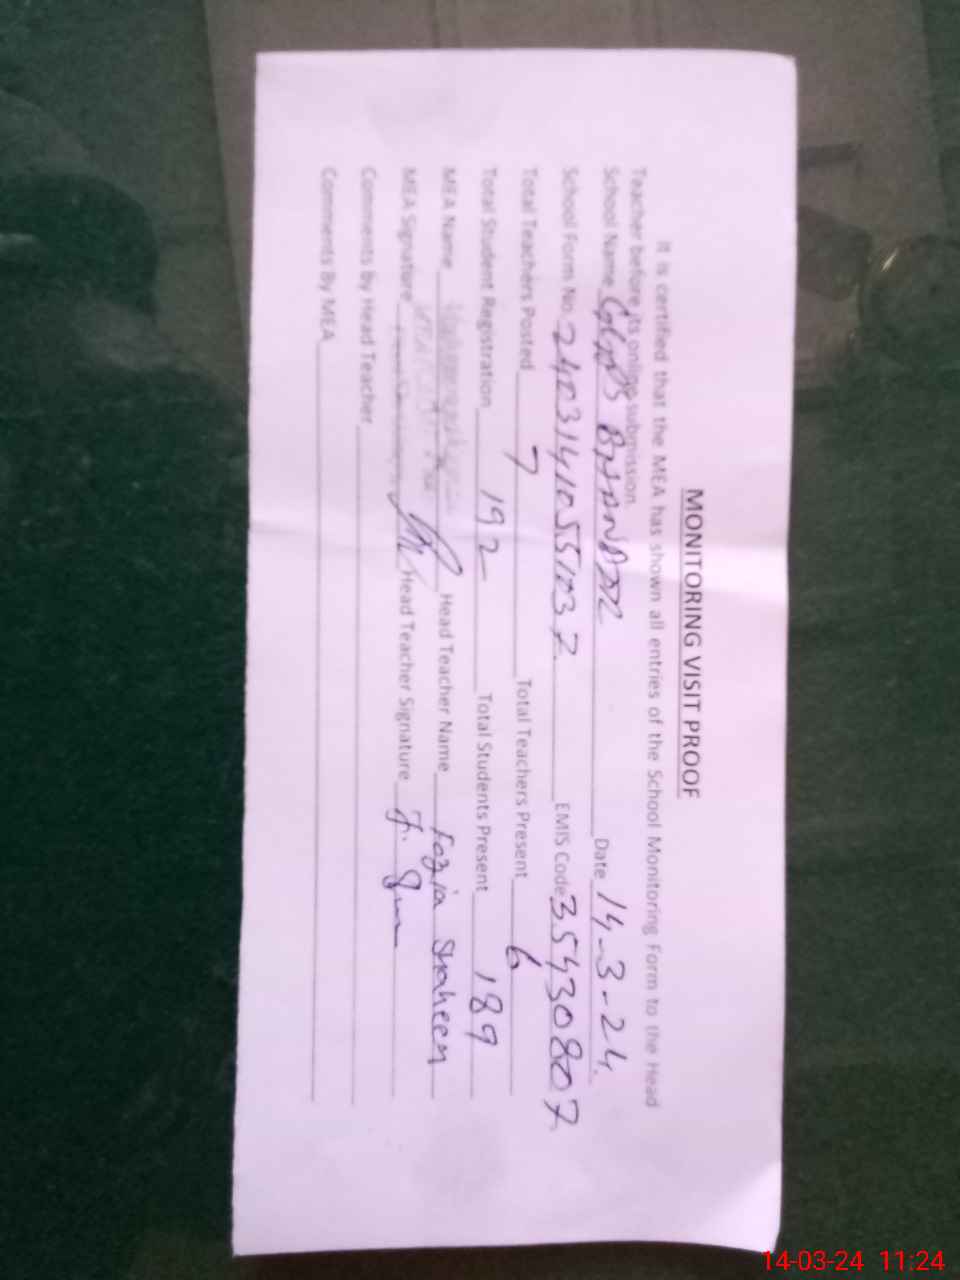 MONITORING VISIT PROOF
It is certified that the MEA has shown all entries of the School Monitoring Form to the Head
Teacher before its online submission.
School Name Date 14-3-24
School Form No. EMIS Code 35430807
Total Teachers Posted 7 Total Teachers Present 6
Total Student Registration 192 Total Students Present 189
MEA Name Head Teacher Name Fozia Shaheen
MEA Signature Head Teacher Signature
Comments by Head Teacher
Comments By MEA
14-03-24 11:24